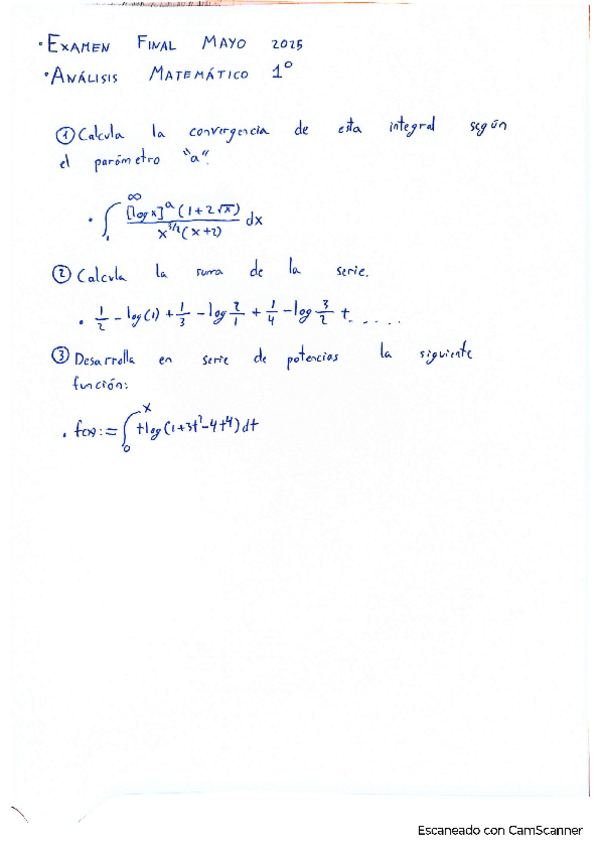 · EXAMEN FINAL MAYO 2025
· ANÁLISIS MATEMÁTICO 1º
① Calcula la convergencia de esta integral según
el parámetro "a".
· ∫₁^∞ [log x]^a (1+2√x) / x^{3/2}(x+2) dx
② Calcula la suma de la serie.
· 1/2 - log(1) + 1/3 - log 2/1 + 1/4 - log 3/2 + .....
③ Desarrolla en serie de potencias la siguiente
función:
· f(x) := ∫₀^x t log(1+3t²-4t⁴) dt
Escaneado con CamScanner